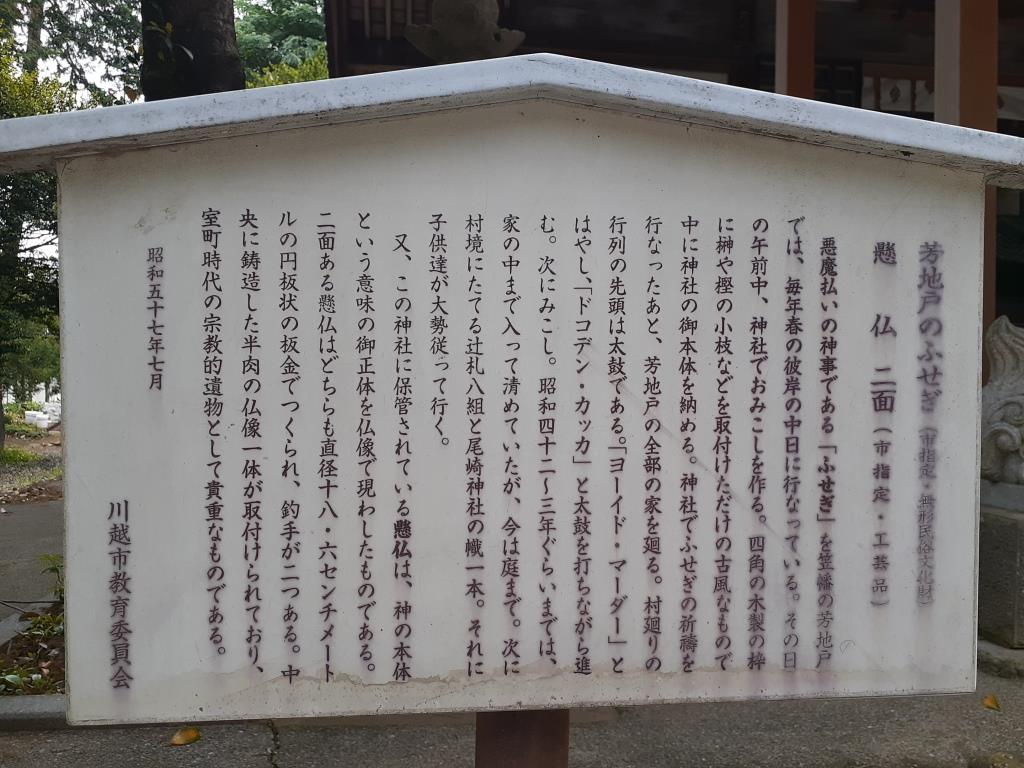 芳地戸のふせぎ（市指定・無形民俗文化財）
懸　仏　二面（市指定・工芸品）
悪魔払いの神事である「ふせぎ」を笠幡の芳地戸
では、毎年春の彼岸の中日に行なっている。その日
の午前中、神社でおみこしを作る。四角の木製の枠
に榊や樫の小枝などを取付けただけの古風なもので
中に神社の御本体を納める。神社でふせぎの祈禱を
行なったあと、芳地戸の全部の家を廻る。村廻りの
行列の先頭は太鼓である。「ヨーイド・マーダー」と
はやし、「ドコデン・カッカ」と太鼓を打ちながら進
む。次にみこし。昭和四十二～三年ぐらいまでは、
家の中まで入って清めていたが、今は庭まで。次に
村境にたてる辻札八組と尾崎神社の幟一本。それに
子供達が大勢従って行く。
又、この神社に保管されている懸仏は、神の本体
という意味の御正体を仏像で現わしたものである。
二面ある懸仏はどちらも直径十八・六センチメート
ルの円板状の板金でつくられ、釣手が二つある。中
央に鋳造した半肉の仏像一体が取付けられており、
室町時代の宗教的遺物として貴重なものである。
昭和五十七年七月
川越市教育委員会